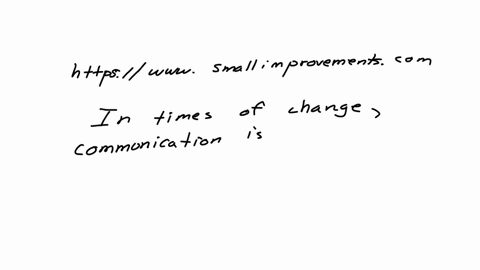 https://www.smallimprovements.com
In times of change,
communication is